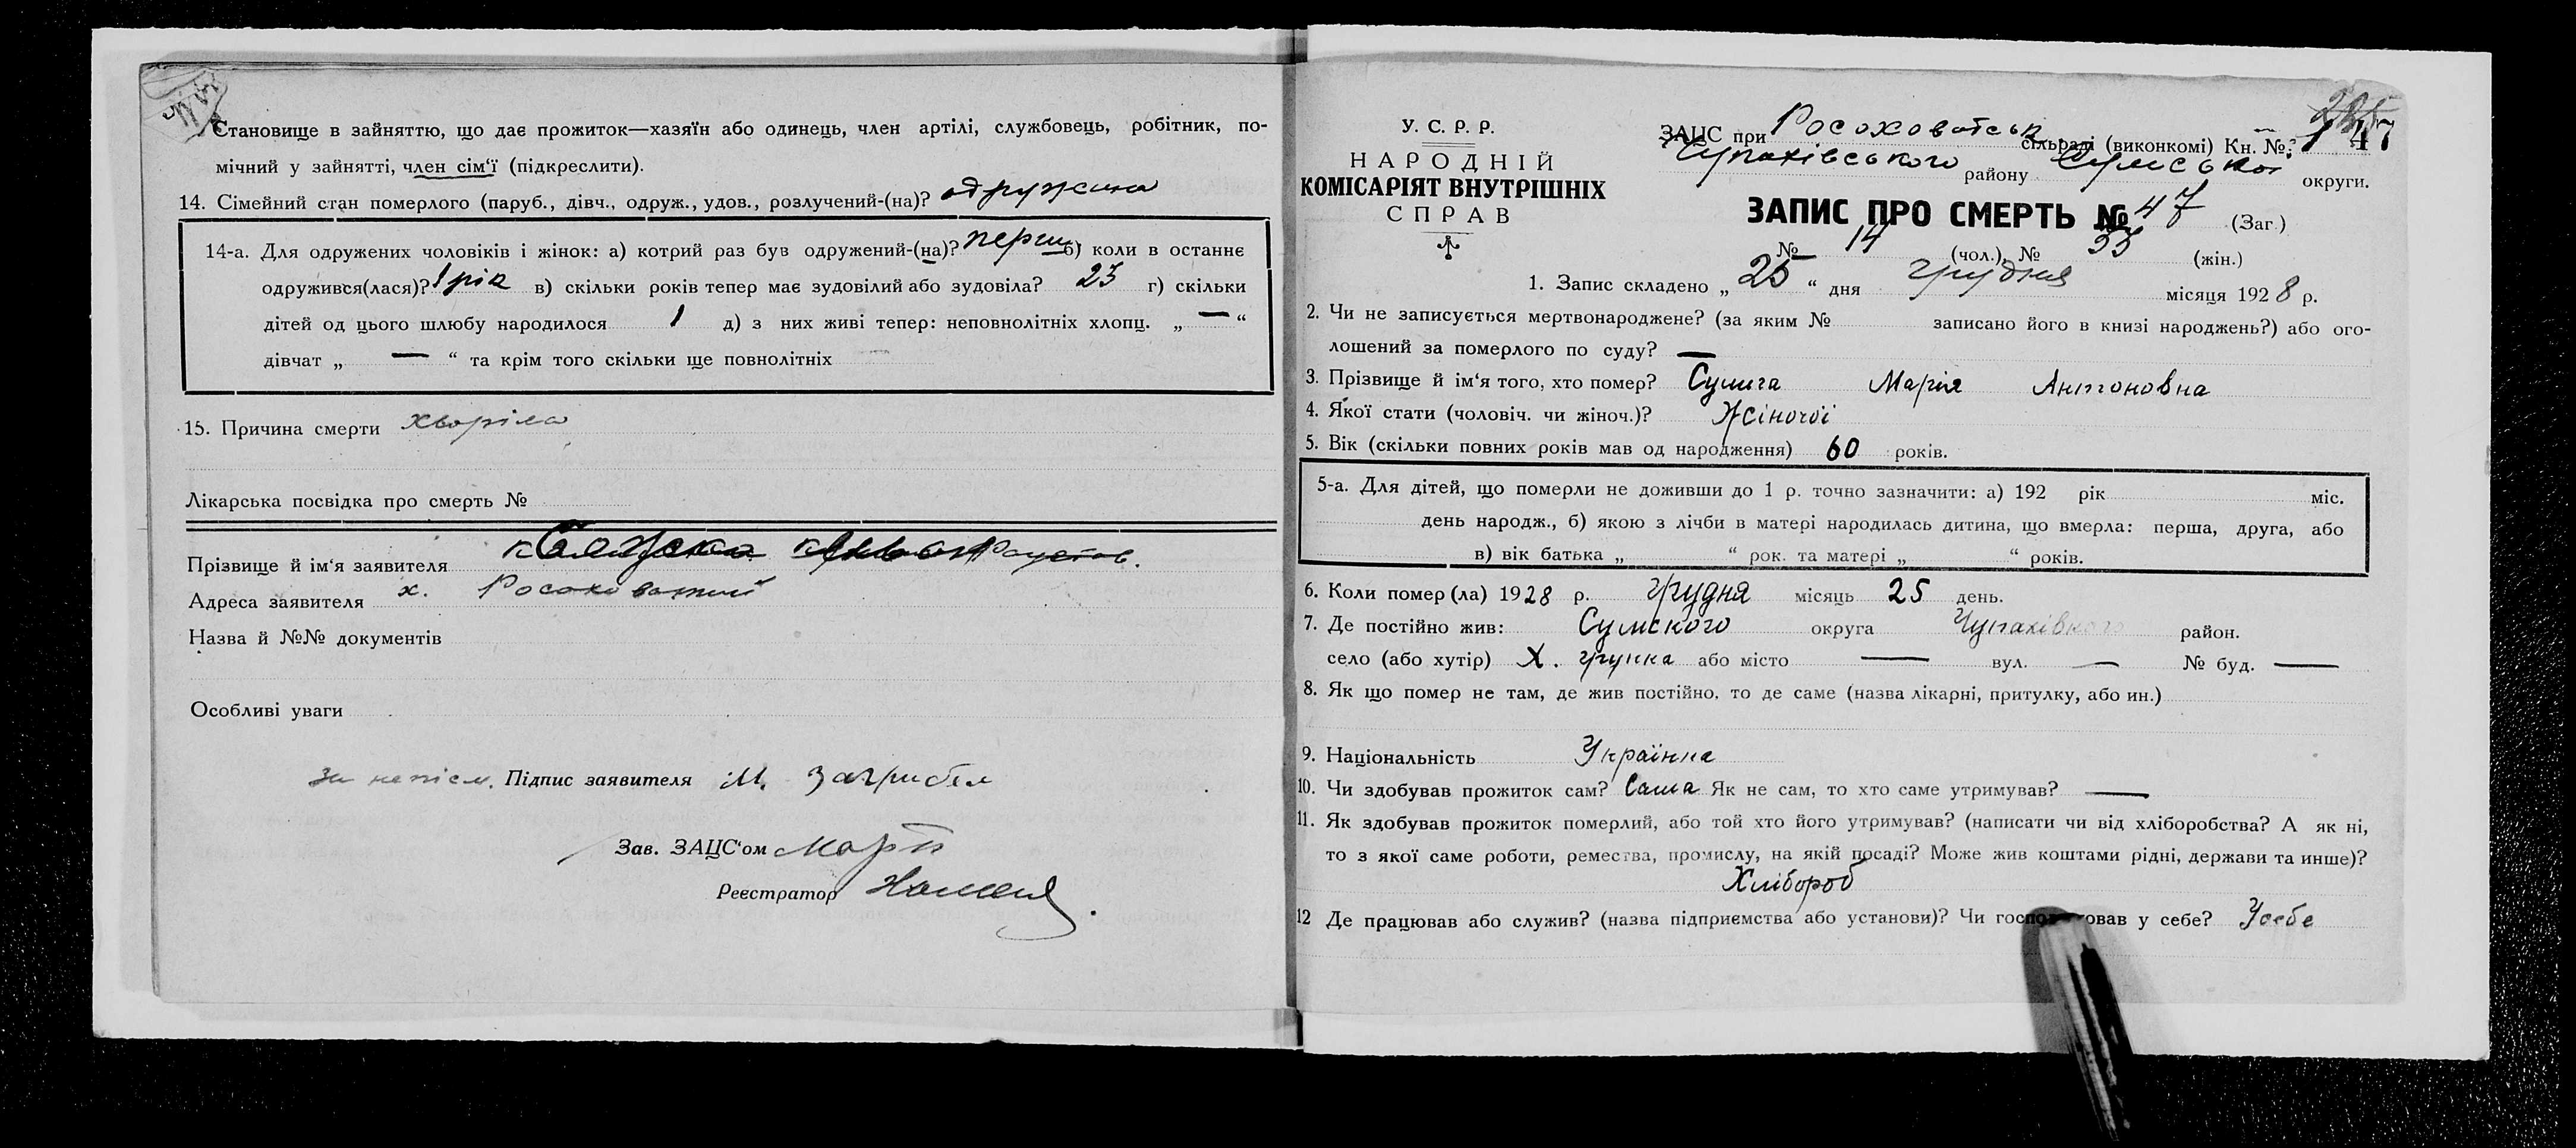 Становище в зайняттю, що дає прожиток—хазяїн або одинець, член артілі, службовець, робітник, по-
мічний у зайнятті, член сім'ї (підкреслити).
14. Сімейний стан померлого (паруб., дівч., одруж., удов., розлучений-(на)? одружена
14-а. Для одружених чоловіків і жінок: а) котрий раз був одружений-(на)? перш б) коли в останнє
одружився(лася)? 1 рік в) скільки років тепер має зудовілий або зудовіла? 23 г) скільки
дітей од цього шлюбу народилося 1 д) з них живі тепер: неповнолітніх хлопц. „ — “
дівчат „ — “ та крім того скільки ще повнолітніх —
15. Причина смерти хворіла
Лікарська посвідка про смерть №
Прізвище й ім'я заявителя
Адреса заявителя х. Росоховатий
Назва й №№ документів
Особливі уваги
За неписм. Підпис заявителя М. Загрибел
Зав. ЗАЦС'ом
Реєстратор
У. С. Р. Р.
НАРОДНІЙ
КОМІСАРІЯТ ВНУТРІШНІХ
СПРАВ
ЗАЦС при Росоховатськ сільраді (виконкомі) Кн. № 1 47
Чупахівського району Сумської округи.
ЗАПИС ПРО СМЕРТЬ № 47 (Заг.)
№ 14 (чол.), № 33 (жін.)
1. Запис складено „ 25 “ дня грудня місяця 1928 р.
2. Чи не записується мертвонароджене? (за яким № записано його в книзі народжень?) або ого-
лошений за померлого по суду? —
3. Прізвище й ім'я того, хто помер? Сулига Марія Антоновна
4. Якої стати (чоловіч. чи жіноч.)? Жіночої
5. Вік (скільки повних років мав од народження) 60 років.
5-а. Для дітей, що померли не доживши до 1 р. точно зазначити: а) 192 рік міс.
день народж., б) якою з лічби в матері народилась дитина, що вмерла: перша, друга, або
в) вік батька „ “ рок. та матері „ “ років.
6. Коли помер (ла) 1928 р. грудня місяць 25 день.
7. Де постійно жив: Сумского округа Чупахівского район.
село (або хутір) Х. грунка або місто — вул. — № буд. —
8. Як що помер не там, де жив постійно, то де саме (назва лікарні, притулку, або ин.)
9. Національність Українка
10. Чи здобував прожиток сам? Сама Як не сам, то хто саме утримував? —
11. Як здобував прожиток померлий, або той хто його утримував? (написати чи від хліборобства? А як ні,
то з якої саме роботи, ремества, промислу, на якій посаді? Може жив коштами рідні, держави та инше)?
Хлібороб
12 Де працював або служив? (назва підприємства або установи)? Чи госпо овав у себе? Усебе